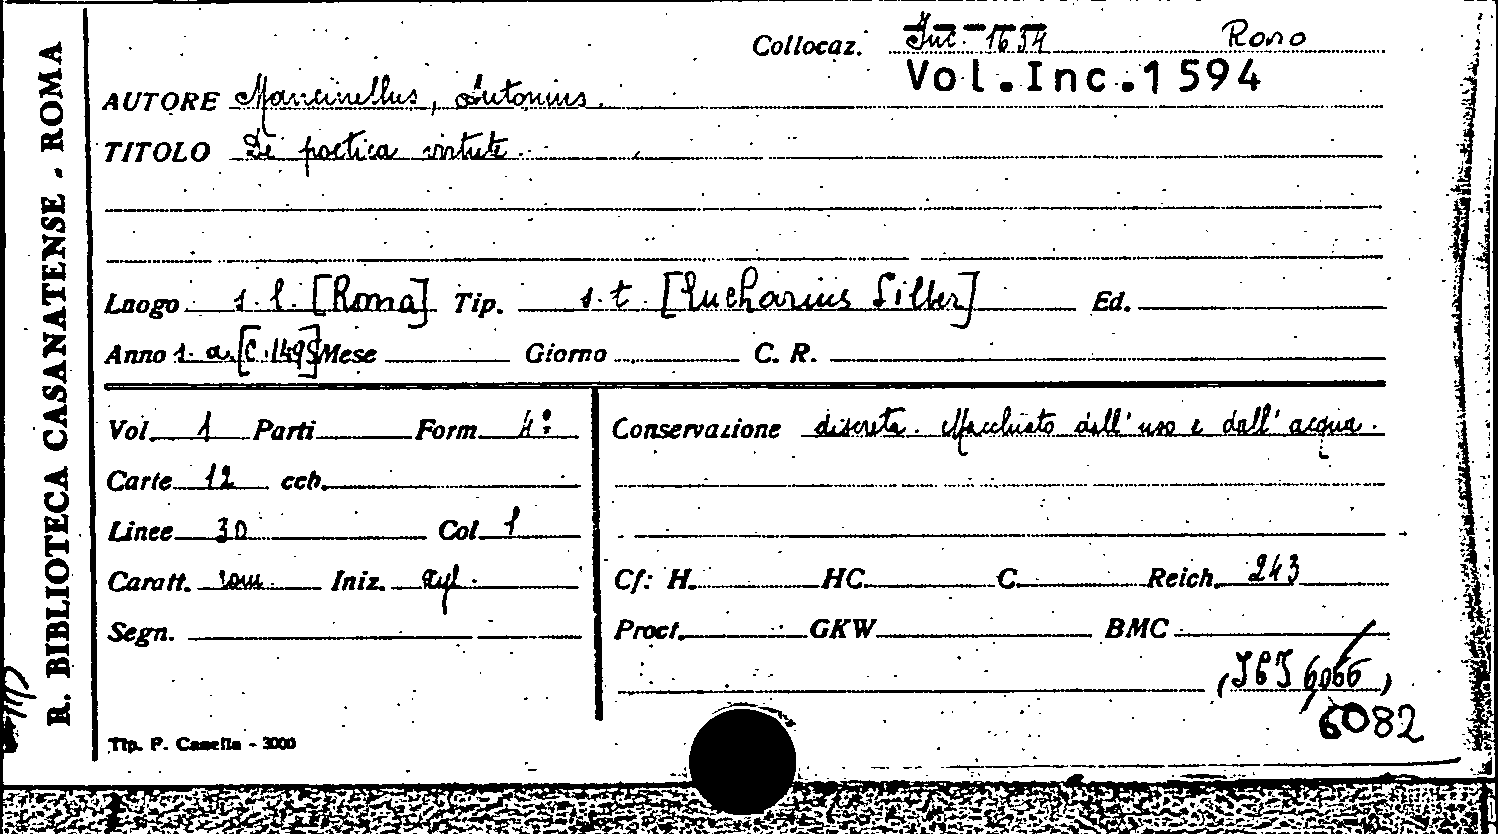 R. BIBLIOTECA CASANATENSE - ROMA
Collocaz. Inc. 1654 Raro
Vol.Inc.1594
AUTORE Mancinellus, Antonius.
TITOLO De poetica virtute.
Luogo s. l. [Roma] Tip. s. t. [Eucharius Silber] Ed.
Anno s. a. [C. 1495] Mese Giorno C. R.
Vol. 1 Parti Form. 4°
Carte 12 ccb.
Linee 30 Col. 1
Caratt. rom. Iniz. xyl.
Segn.
Conservazione discreta. Macchiato dall'uso e dall'acqua.
Cf: H. HC. C. Reich. 243
Proct. GKW BMC
(IGI 6066)
6082
Tip. P. Canella - 3000